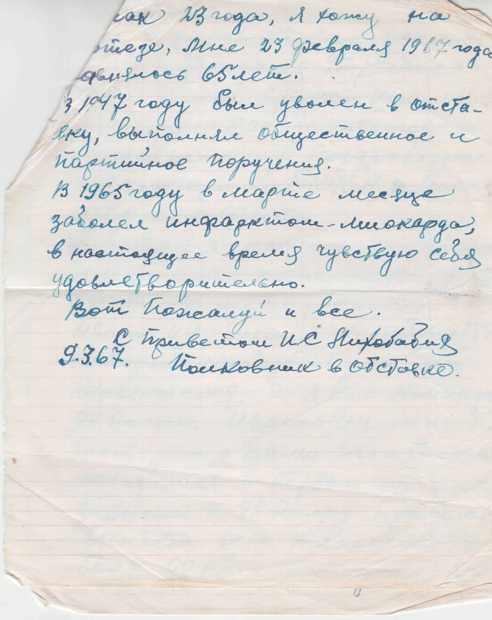 23 года, я хожу на
мне 23 февраля 1967 года
65 лет.
1947 году был уволен в отста-
вку, выполнял общественное и
партийное поручения.
В 1965 году в марте месяце
заболел инфарктом-миокарда,
в настоящее время чувствую себя
удовлетворительно.
Вот пожалуй и все.
С приветом ИС
9.3.67. Полковник в отставке.